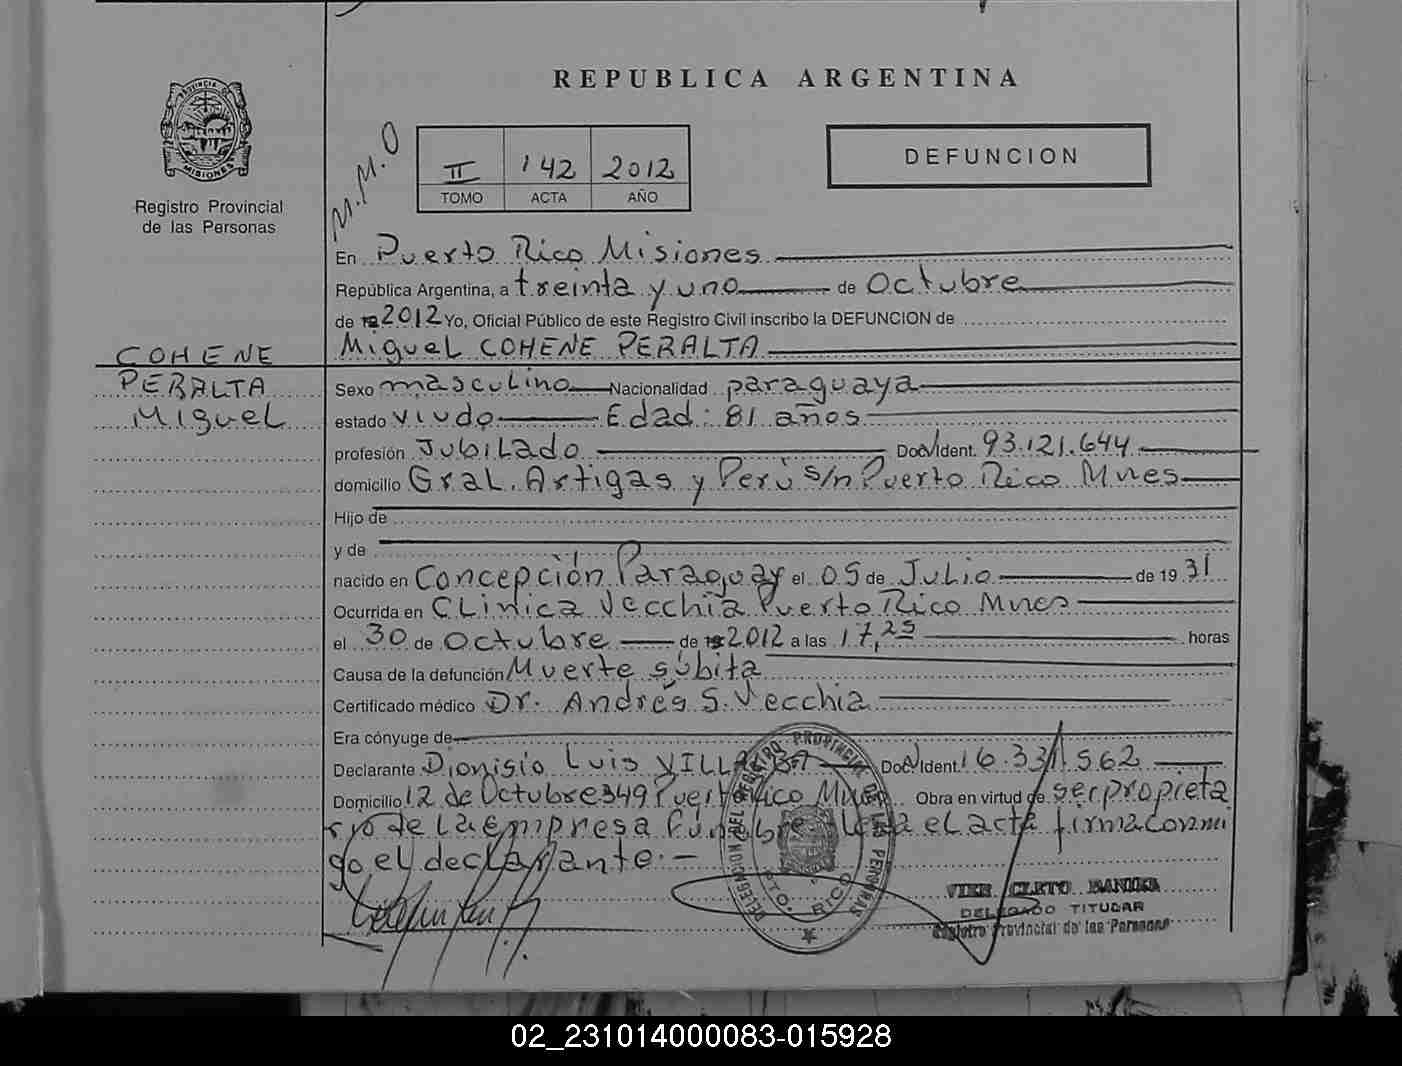 REPUBLICA ARGENTINA
PROVINCIA DE
MISIONES
Registro Provincial
de las Personas
M.M.O
II 142 2012
TOMO ACTA AÑO
DEFUNCION
En Puerto Rico Misiones
República Argentina, a treinta y uno de Octubre
de 19 2012 Yo, Oficial Público de este Registro Civil inscribo la DEFUNCION de
Miguel COHENE PERALTA
COHENE
PERALTA
Miguel
Sexo masculino Nacionalidad paraguaya
estado viudo Edad: 81 años
profesión Jubilado Doc. Ident. 93.121.644
domicilio Gral. Artigas y Perú s/n Puerto Rico Mnes
Hijo de
y de
nacido en Concepción Paraguay el 05 de Julio de 19 31
Ocurrida en Clinica Vecchia Puerto Rico Mnes
el 30 de Octubre de 19 2012 a las 17,25 horas
Causa de la defunción Muerte súbita
Certificado médico Dr. Andrés S. Vecchia
Era cónyuge de
Declarante Dionisio Luis VILLALBA Doc. Ident. 16.331.562
Domicilio 12 de Octubre 349 Puerto Rico Mnes Obra en virtud de ser propieta
rio de la empresa fúnebre Leída el acta firma conmi
go el declarante.-
DELEGACION DEL REGISTRO PROVINCIAL DE LAS PERSONAS
PTO. RICO
CLETO
DELEGADO TITULAR
Registro Provincial de las Personas
02_231014000083-015928